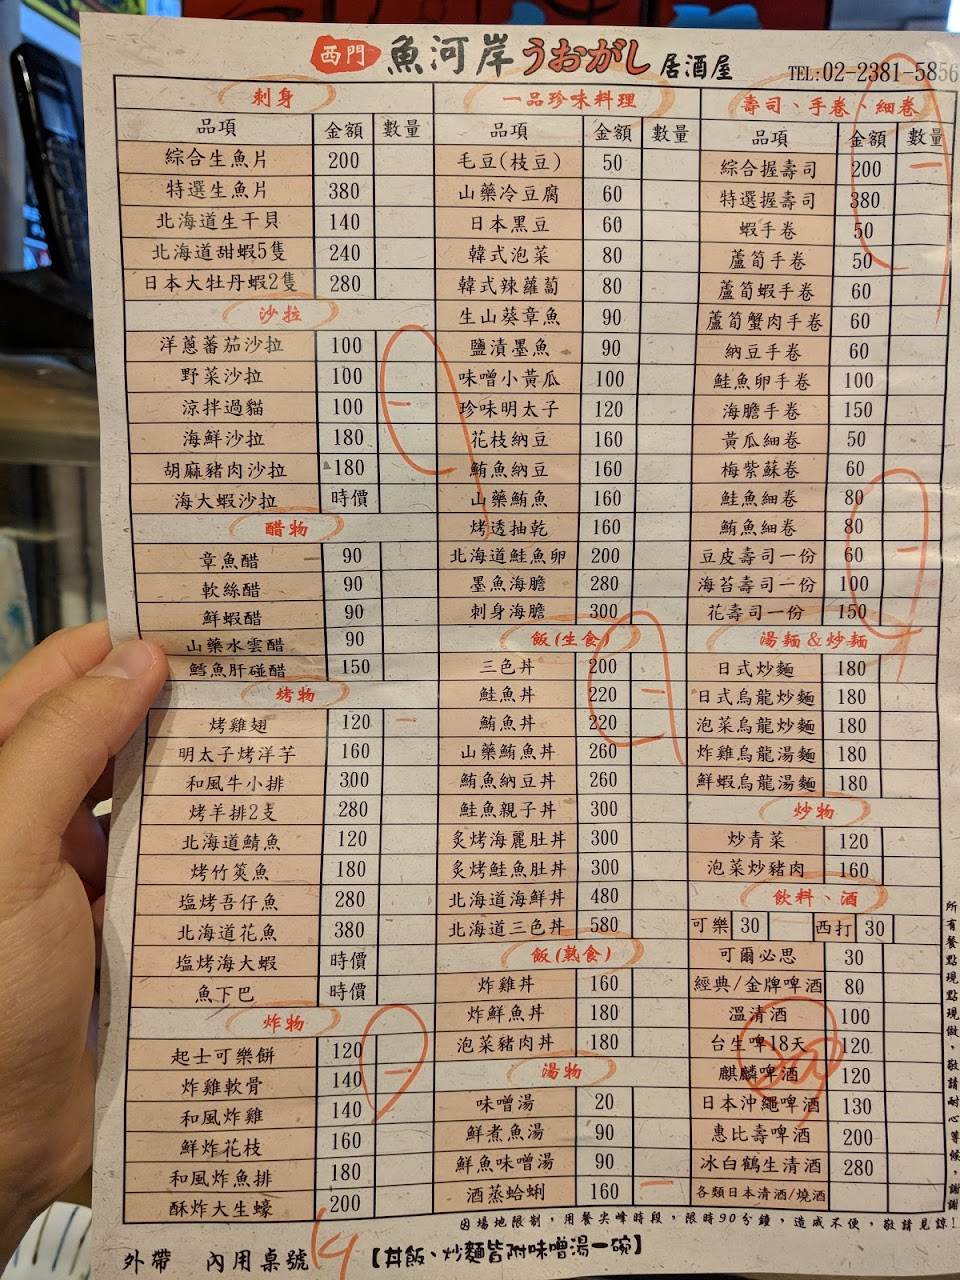 西門 魚河岸 うおがし 居酒屋 TEL:02-2381-5856
刺身
品項 金額 數量
綜合生魚片 200
特選生魚片 380
北海道生干貝 140
北海道甜蝦5隻 240
日本大牡丹蝦2隻 280
沙拉
洋蔥蕃茄沙拉 100
野菜沙拉 100
涼拌過貓 100
海鮮沙拉 180
胡麻豬肉沙拉 180
海大蝦沙拉 時價
醋物
章魚醋 90
軟絲醋 90
鮮蝦醋 90
山藥水雲醋 90
鱈魚肝碰醋 150
烤物
烤雞翅 120 一
明太子烤洋芋 160
和風牛小排 300
烤羊排2支 280
北海道鯖魚 120
烤竹筴魚 180
塩烤香仔魚 280
北海道花魚 380
塩烤海大蝦 時價
魚下巴 時價
炸物
起士可樂餅 120
炸雞軟骨 140
和風炸雞 140
鮮炸花枝 160
和風炸魚排 180
酥炸大生蠔 200
外帶 內用桌號 14
一品珍味料理
品項 金額 數量
毛豆(枝豆) 50
山藥冷豆腐 60
日本黑豆 60
韓式泡菜 80
韓式辣蘿蔔 80
生山葵章魚 90
鹽漬墨魚 90
味噌小黃瓜 100
珍味明太子 120
花枝納豆 160
鮪魚納豆 160
山藥鮪魚 160
烤透抽乾 160
北海道鮭魚卵 200
墨魚海膽 280
刺身海膽 300
飯(生食)
三色丼 200
鮭魚丼 220 一
鮪魚丼 220
山藥鮪魚丼 260
鮪魚納豆丼 260
鮭魚親子丼 300
炙烤海鱺肚丼 300
炙烤鮭魚肚丼 300
北海道海鮮丼 480
北海道三色丼 580
飯(熟食)
炸雞丼 160
炸鮮魚丼 180
泡菜豬肉丼 180
湯物
味噌湯 20
鮮煮魚湯 90
鮮魚味噌湯 90
酒蒸蛤蜊 160 一
壽司、手卷、細卷
品項 金額 數量
綜合握壽司 200 一
特選握壽司 380
蝦手卷 50
蘆筍手卷 50
蘆筍蝦手卷 60
蘆筍蟹肉手卷 60
納豆手卷 60
鮭魚卵手卷 100
海膽手卷 150
黃瓜細卷 50
梅紫蘇卷 60
鮭魚細卷 80
鮪魚細卷 80
豆皮壽司一份 60 一
海苔壽司一份 100
花壽司一份 150
湯麵&炒麵
日式炒麵 180
日式烏龍炒麵 180
泡菜烏龍炒麵 180
炸雞烏龍湯麵 180
鮮蝦烏龍湯麵 180
炒物
炒青菜 120
泡菜炒豬肉 160
飲料、酒
可樂 30 西打 30
可爾必思 30
經典/金牌啤酒 80
溫清酒 100
台生啤18天 120
麒麟啤酒 120
日本沖繩啤酒 130
惠比壽啤酒 200
冰白鶴生清酒 280
各類日本清酒/燒酒
所有餐點現點現做，敬請耐心等候，謝謝
因場地限制，用餐尖峰時段，限時90分鐘，造成不便，敬請見諒!
【丼飯、炒麵皆附味噌湯一碗】